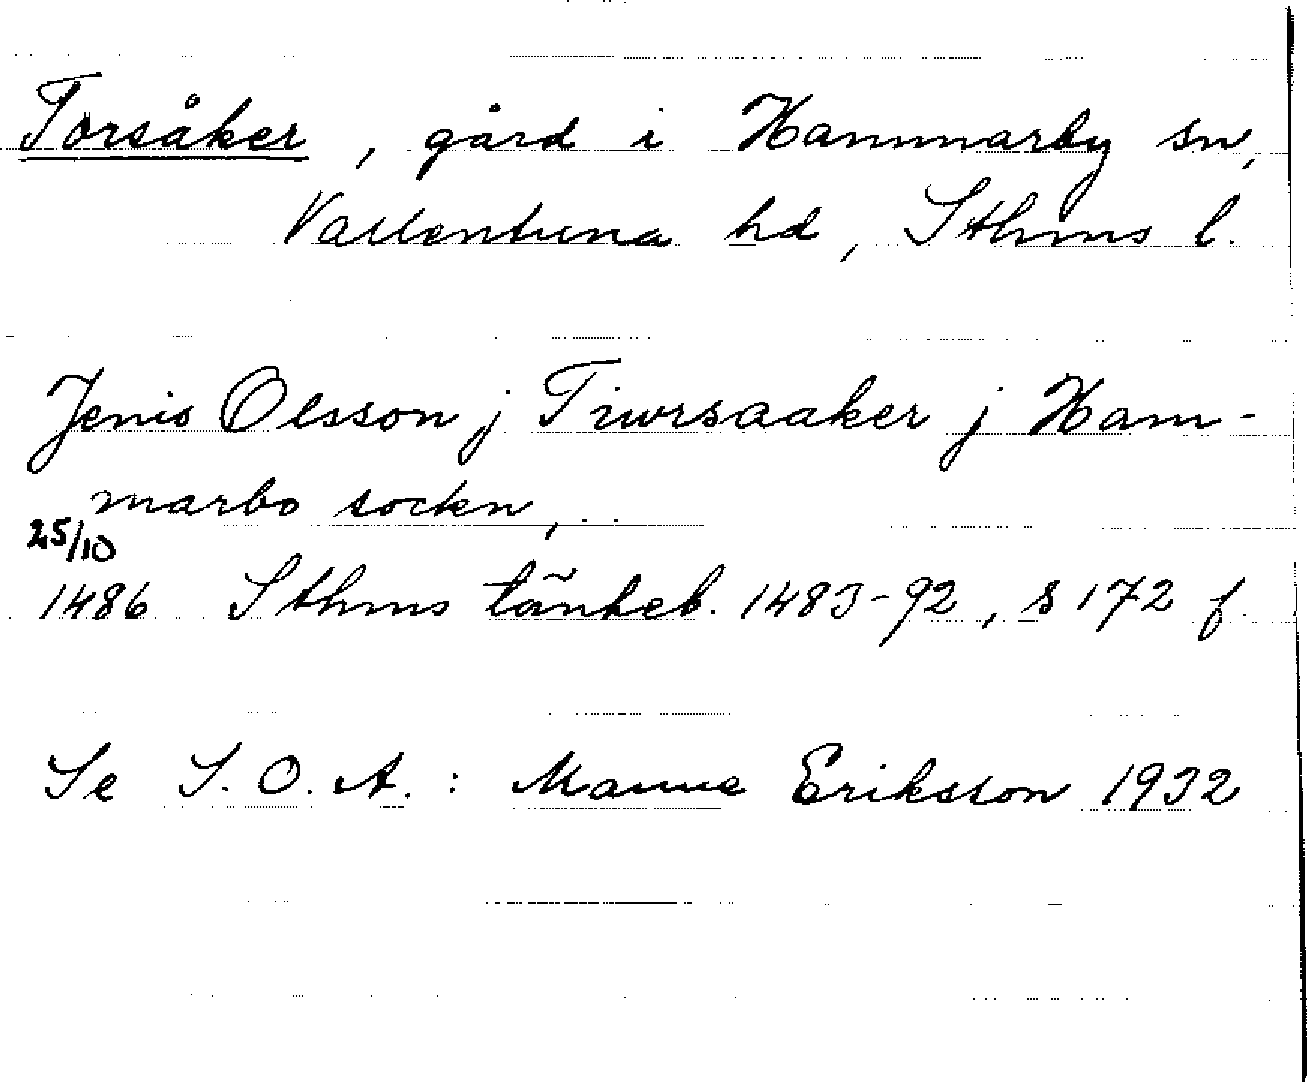 Torsåker, gård i Hammarby sn,
Vallentuna hd, Sthms l.
Jenis Olsson j Tiwrsaaker j Ham-
marbo sockn, . .
25/10
1486 Sthms tänkeb. 1483-92, s 172 f.
Se S. O. A. : Manne Eriksson 1932